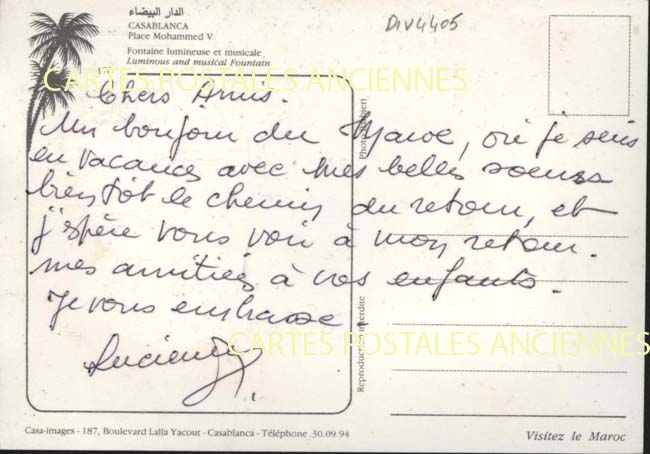 الدار البيضاء
CASABLANCA
Place Mohammed V
Fontaine lumineuse et musicale
Luminous and musical Fountain
177
DIV4405
CARTES POSTALES ANCIENNES
Chers Amis.
Un bonjour du Maroc, où je suis
en vacances avec mes belles soeurs
bientôt le chemin du retour, et
j'espère vous voir à mon retour.
mes amitiés à vos enfants.
Je vous embrasse
CARTES POSTALES ANCIENNES
Reproduction interdite
Casa-images - 187, Boulevard Lalla Yacout - Casablanca - Téléphone .30.09.94
Visitez le Maroc